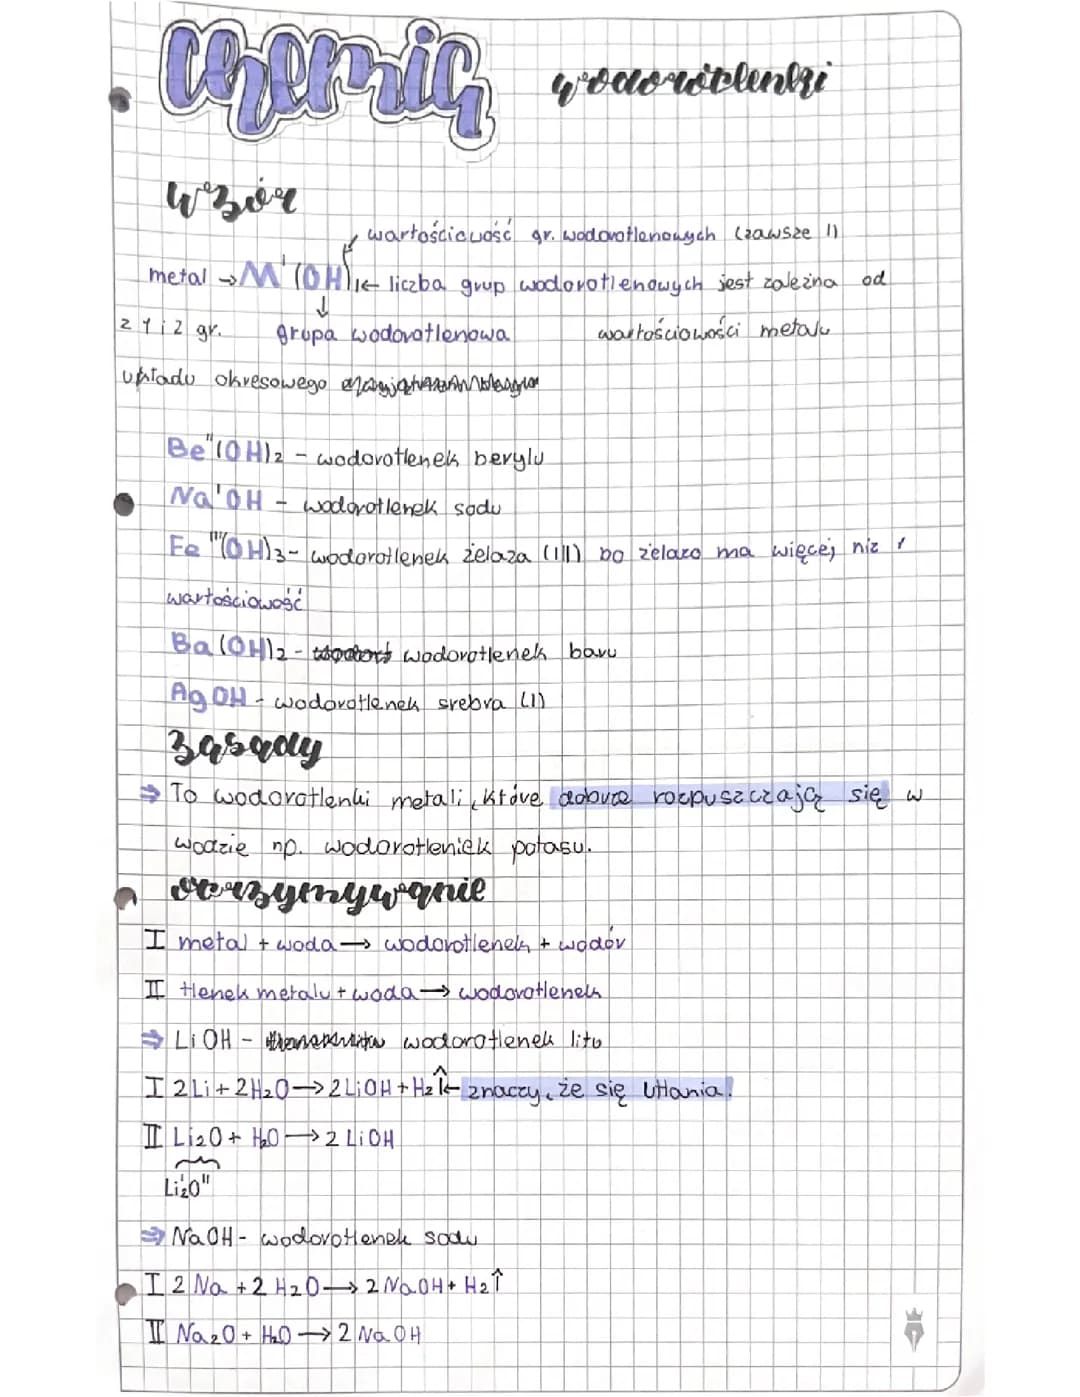 chemia wodorotlenki
wzór
wartościowość gr. wodorotlenowych (zawsze I)
metal → M^I (OH)_1 ← liczba grup wodorotlenowych jest zależna od
z 1 i 2 gr. grupa wodorotlenowa wartościowości metalu
układu okresowego
Be^II(OH)₂ - wodorotlenek berylu
Na^I OH - wodorotlenek sodu
Fe^III(OH)₃ - wodorotlenek żelaza (III) bo żelazo ma więcej niż 1
wartościowość
Ba(OH)₂ - wodorotlenek baru
AgOH - wodorotlenek srebra (I)
zasady
⇒ To wodorotlenki metali, które dobrze rozpuszczają się w
wodzie np. wodorotleniek potasu.
otrzymywanie
I metal + woda → wodorotlenek + wodór
II tlenek metalu + woda → wodorotlenek
⇒ LiOH - wodorotlenek litu
I 2Li + 2H₂O → 2LiOH + H₂↑ ← znaczy, że się utlania!
II Li₂O + H₂O → 2 LiOH
Li₂^I O^II
⇒ NaOH - wodorotlenek sodu
I 2 Na + 2 H₂O → 2 NaOH + H₂↑
II Na₂O + H₂O → 2 NaOH